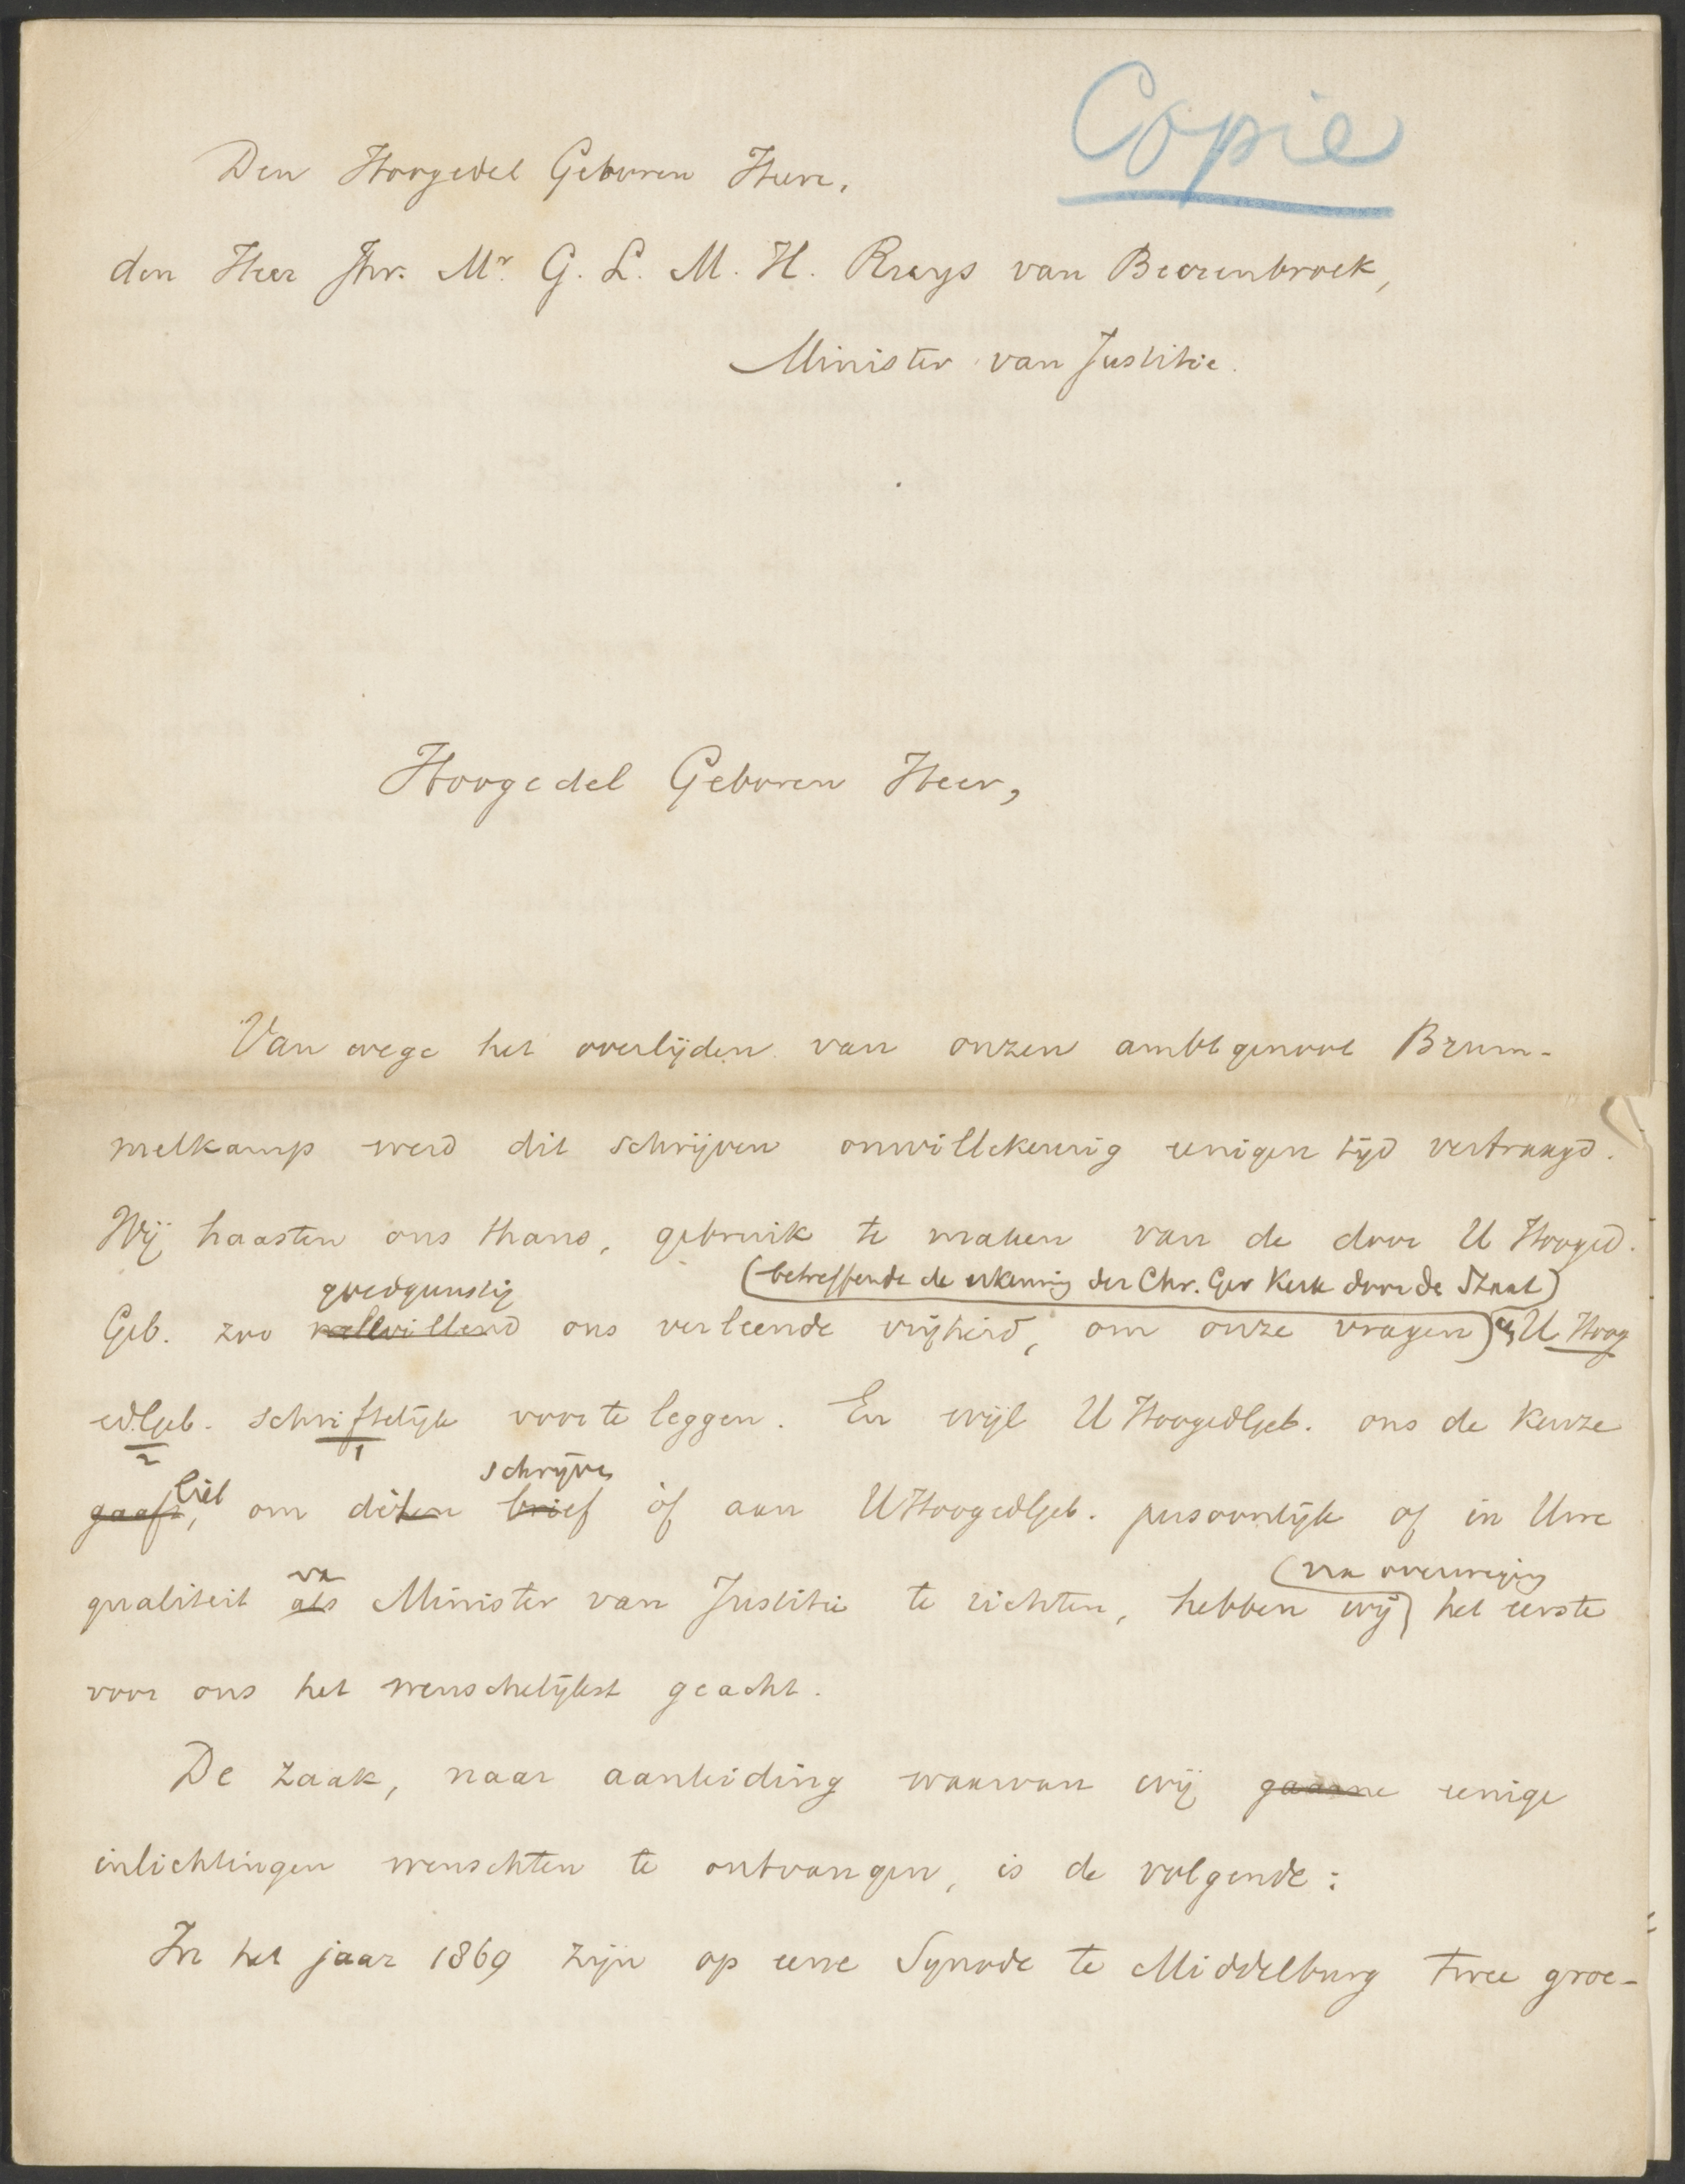 Copie
Den Hoogedel Geboren Heere,
den Heer Jhr. Mr. G. L. M. H. Ruys van Beerenbroek,
Minister van Justitie.
Hoogedel Geboren Heer,
Van wege het overlijden van onzen ambtgenoot Brum-
melkamp werd dit schrijven onwillekeurig eenigen tijd vertraagd.
Wij haasten ons thans, gebruik te maken van de door U Hooged.
goedgunstig (betreffende de erkenning der Chr. Ger Kerk door de Staat)
Geb. zoo welwillend ons verleende vrijheid, om onze vragen U Hoog
edlgeb. schriftelijk voor te leggen. En wijl U Hoogedlgeb. ons de keuze
2 1
liet schrijven
gaaft, om dezen brief òf aan U Hoogedlgeb. persoonlijk of in Uwe
van (na overweging
qualiteit als Minister van Justitie te richten, hebben wij het eerste
voor ons het wenschelijkst geacht.
De zaak, naar aanleiding waarvan wij gaarne eenige
inlichtingen wenschten te ontvangen, is de volgende:
In het jaar 1869 zijn op eene Synode te Middelburg twee groe-